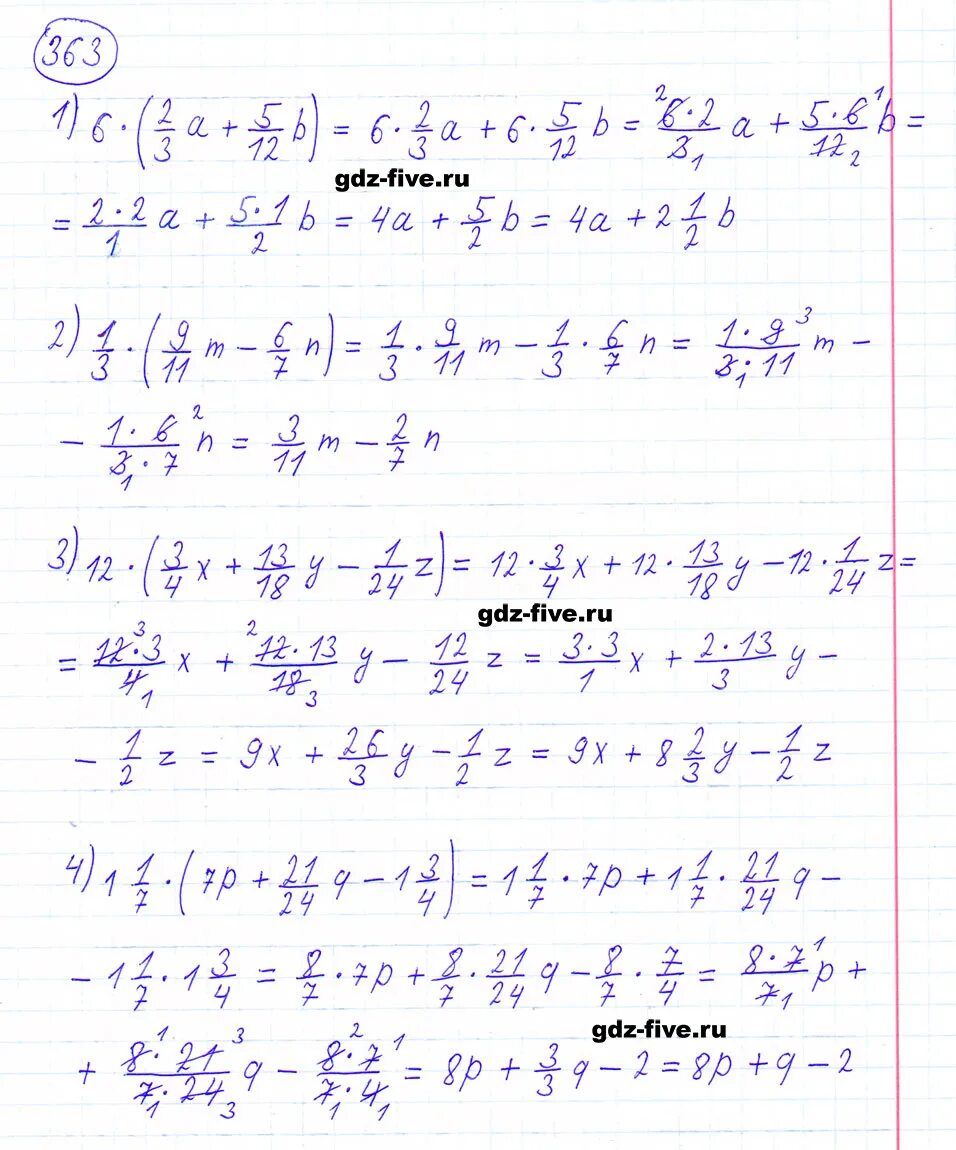 363
1) 6 · (2/3 a + 5/12 b) = 6 · 2/3 a + 6 · 5/12 b = 2 6·2/3 1 a + 5·6 1/12 2 b =
gdz-five.ru
= 2·2/1 a + 5·1/2 b = 4a + 5/2 b = 4a + 2 1/2 b
2) 1/3 · (9/11 m − 6/7 n) = 1/3 · 9/11 m − 1/3 · 6/7 n = 1·9 3/3 1·11 m −
− 1·6 2/3 1·7 n = 3/11 m − 2/7 n
3) 12 · (3/4 x + 13/18 y − 1/24 z) = 12 · 3/4 x + 12 · 13/18 y − 12 · 1/24 z =
gdz-five.ru
= 12 3·3/4 1 x + 2 12·13/18 3 y − 12/24 z = 3·3/1 x + 2·13/3 y −
− 1/2 z = 9x + 26/3 y − 1/2 z = 9x + 8 2/3 y − 1/2 z
4) 1 1/7 · (7p + 21/24 q − 1 3/4) = 1 1/7 · 7p + 1 1/7 · 21/24 q −
− 1 1/7 · 1 3/4 = 8/7 · 7p + 8/7 · 21/24 q − 8/7 · 7/4 = 8·7 1/7 1 p +
gdz-five.ru
+ 8 1·21 3/7 1·24 3 q − 8 2·7 1/7 1·4 1 = 8p + 3/3 q − 2 = 8p + q − 2